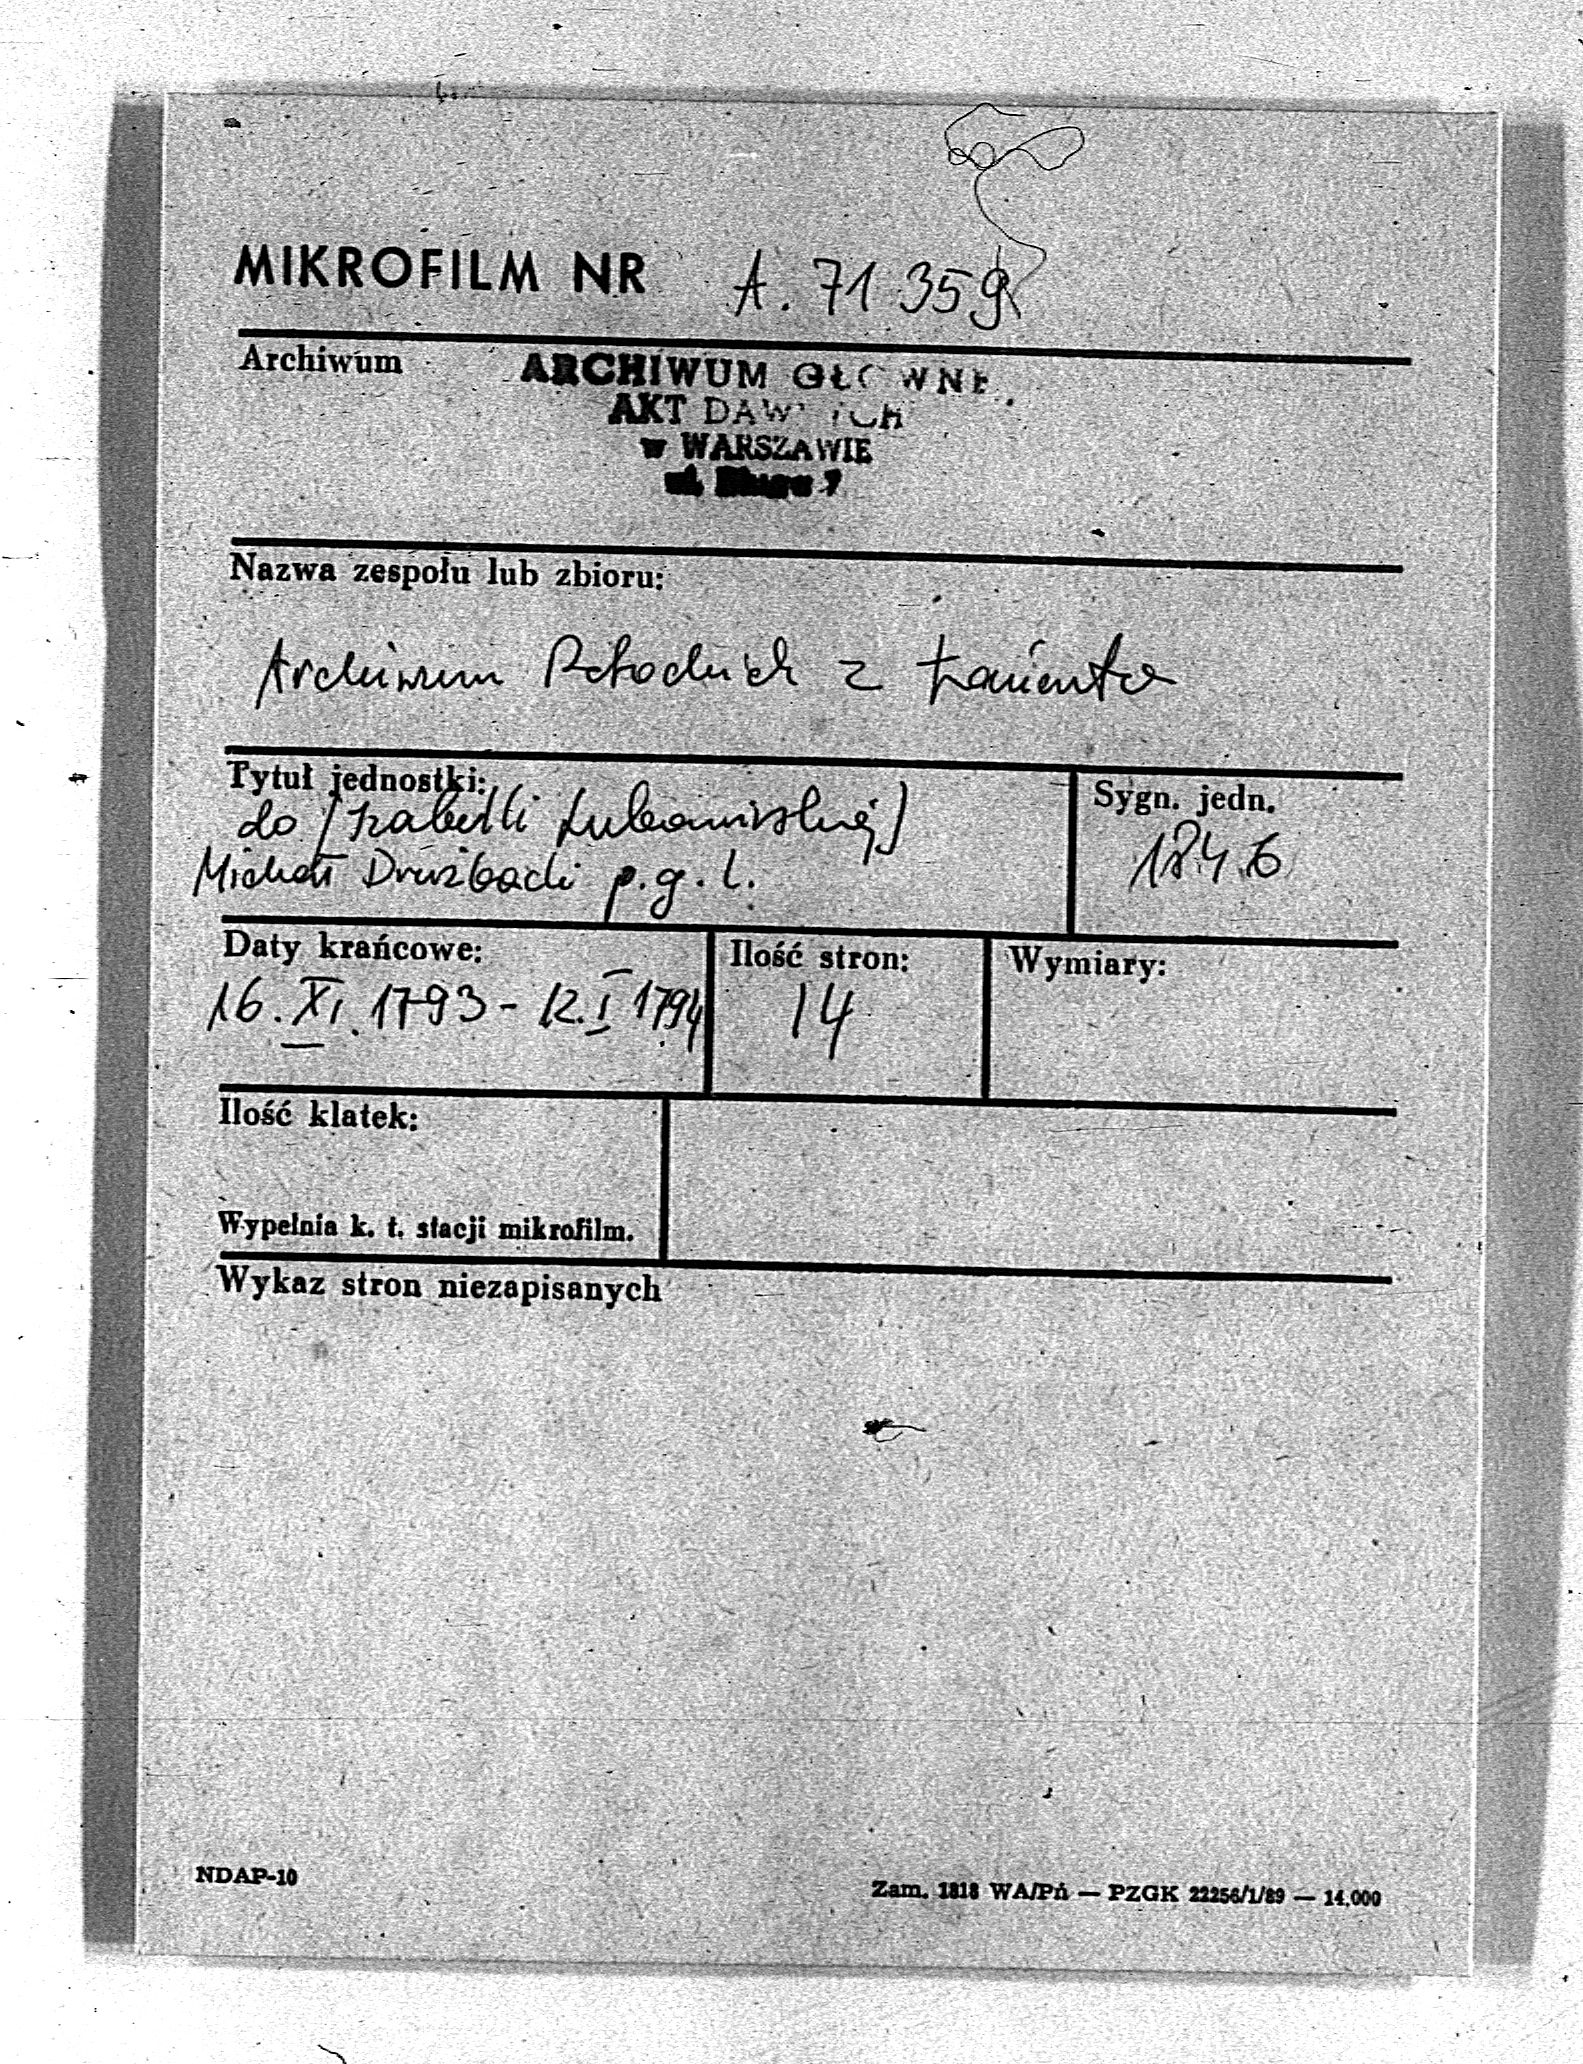 MIKROFILM NR A. 71359
Archiwum
ARCHIWUM GŁÓWNE
AKT DAWNYCH
w WARSZAWIE
ul. Długa 7
Nazwa zespołu lub zbioru:
Archiwum Potockich z Łańcuta
Tytuł jednostki:
do [Izabelli Lubomirskiej]
Michał Drużbacki p.g.l.
Sygn. jedn.
1846
Daty krańcowe:
16.XI.1793 - 12.I 1794
Ilość stron:
14
Wymiary:
Ilość klatek:
Wypełnia k. t. stacji mikrofilm.
Wykaz stron niezapisanych
NDAP-10
Zam. 1818 WA/Pń — PZGK 22256/1/89 — 14.000